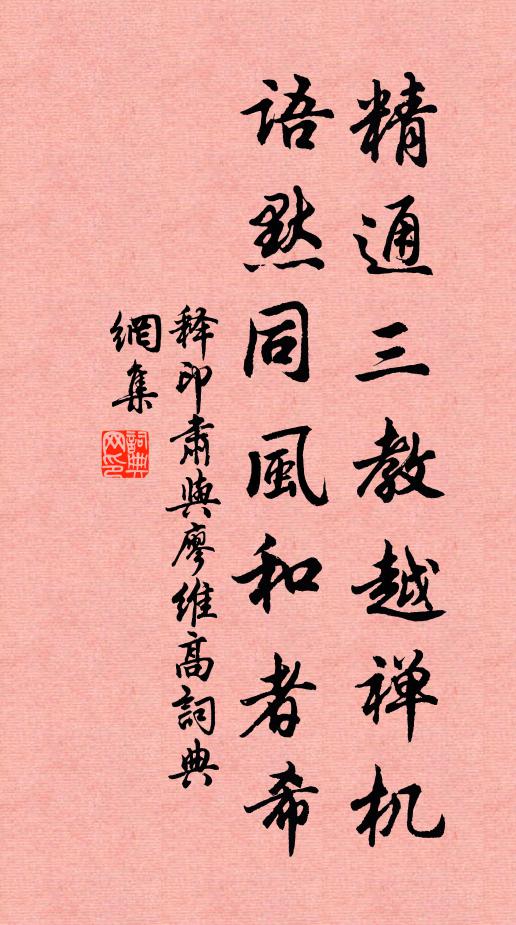 精通三教越禅机
语默同風和者希
释印肃與廖維高詞典
網集
詞典
网印